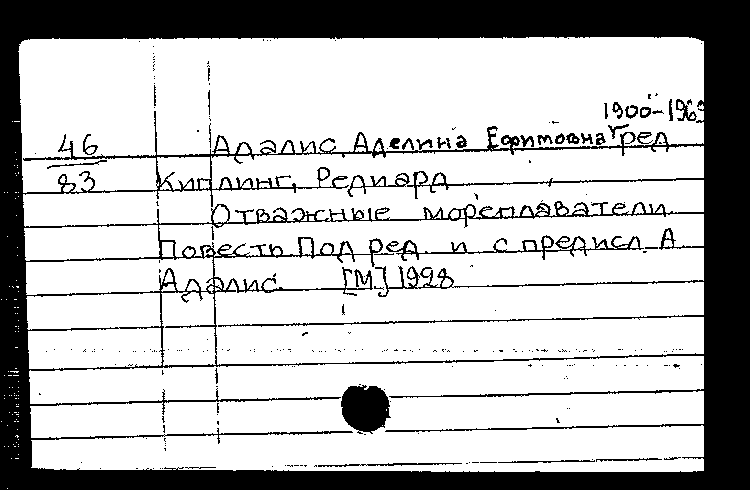 1900-1969
46 Адалис, Аделина Ефимовна ред
83 Киплинг, Редиард
Отважные мореплаватели
Повесть Под ред. и с предисл. А
Адалис. [М] 1928